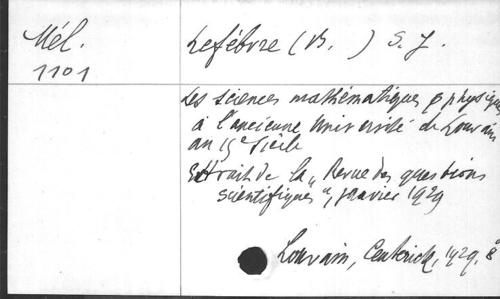 Mél.
1101
Lefébvre (B. ) S. J.
Les sciences mathématiques & physiques
à l'ancienne Université de Louvain
au 15e siècle
Extrait de la „Revue des questions
scientifiques", janvier 1929
Louvain, Ceuterick, 1929, 8°